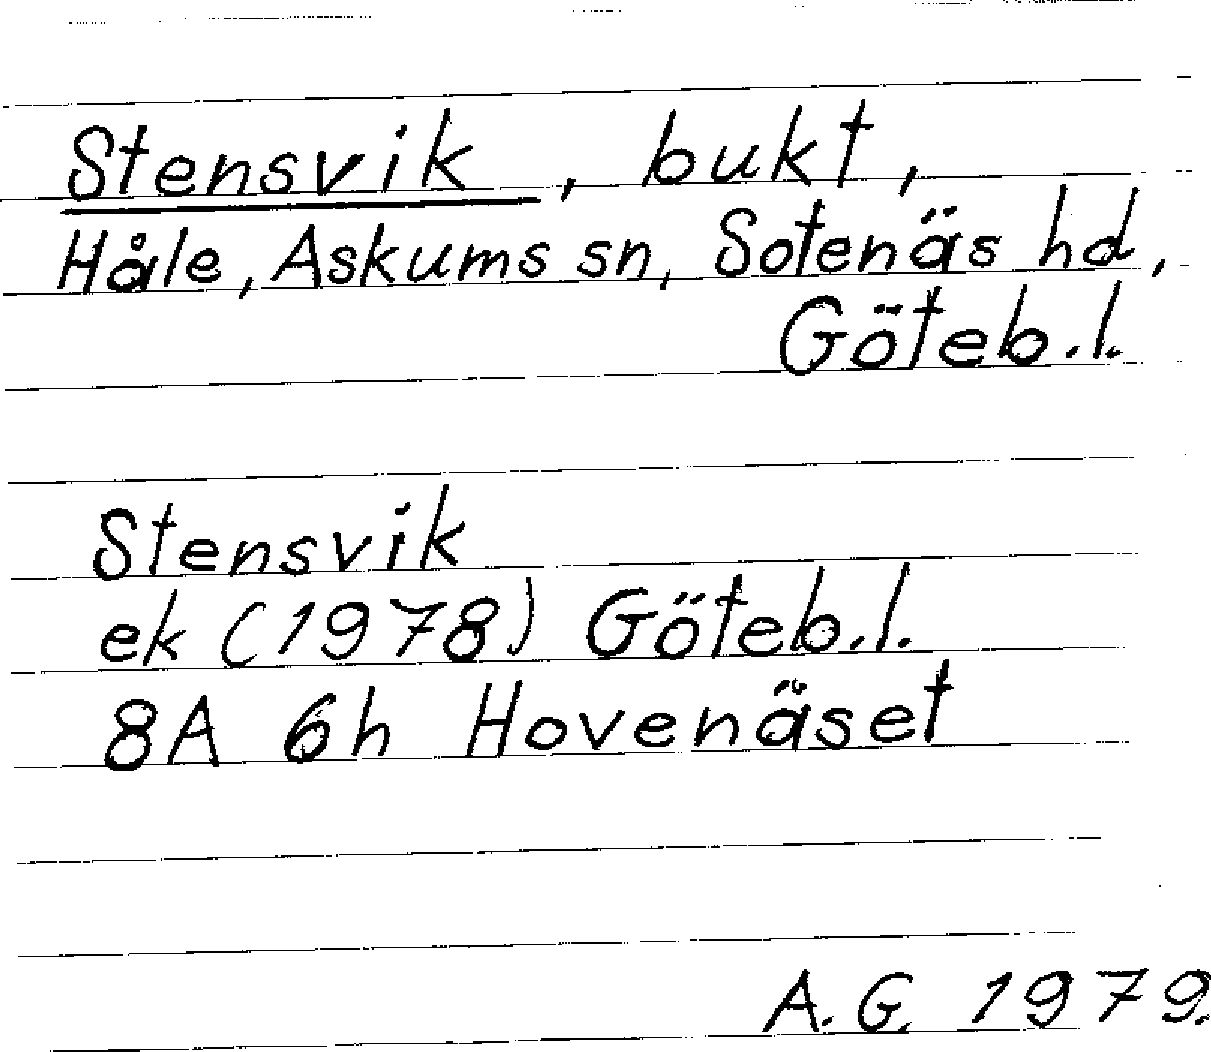 Stensvik, bukt,
Håle, Askums sn, Sotenäs hd,
Göteb.l.
Stensvik
ek (1978) Göteb.l.
8A 6h Hovenäset
A.G. 1979.